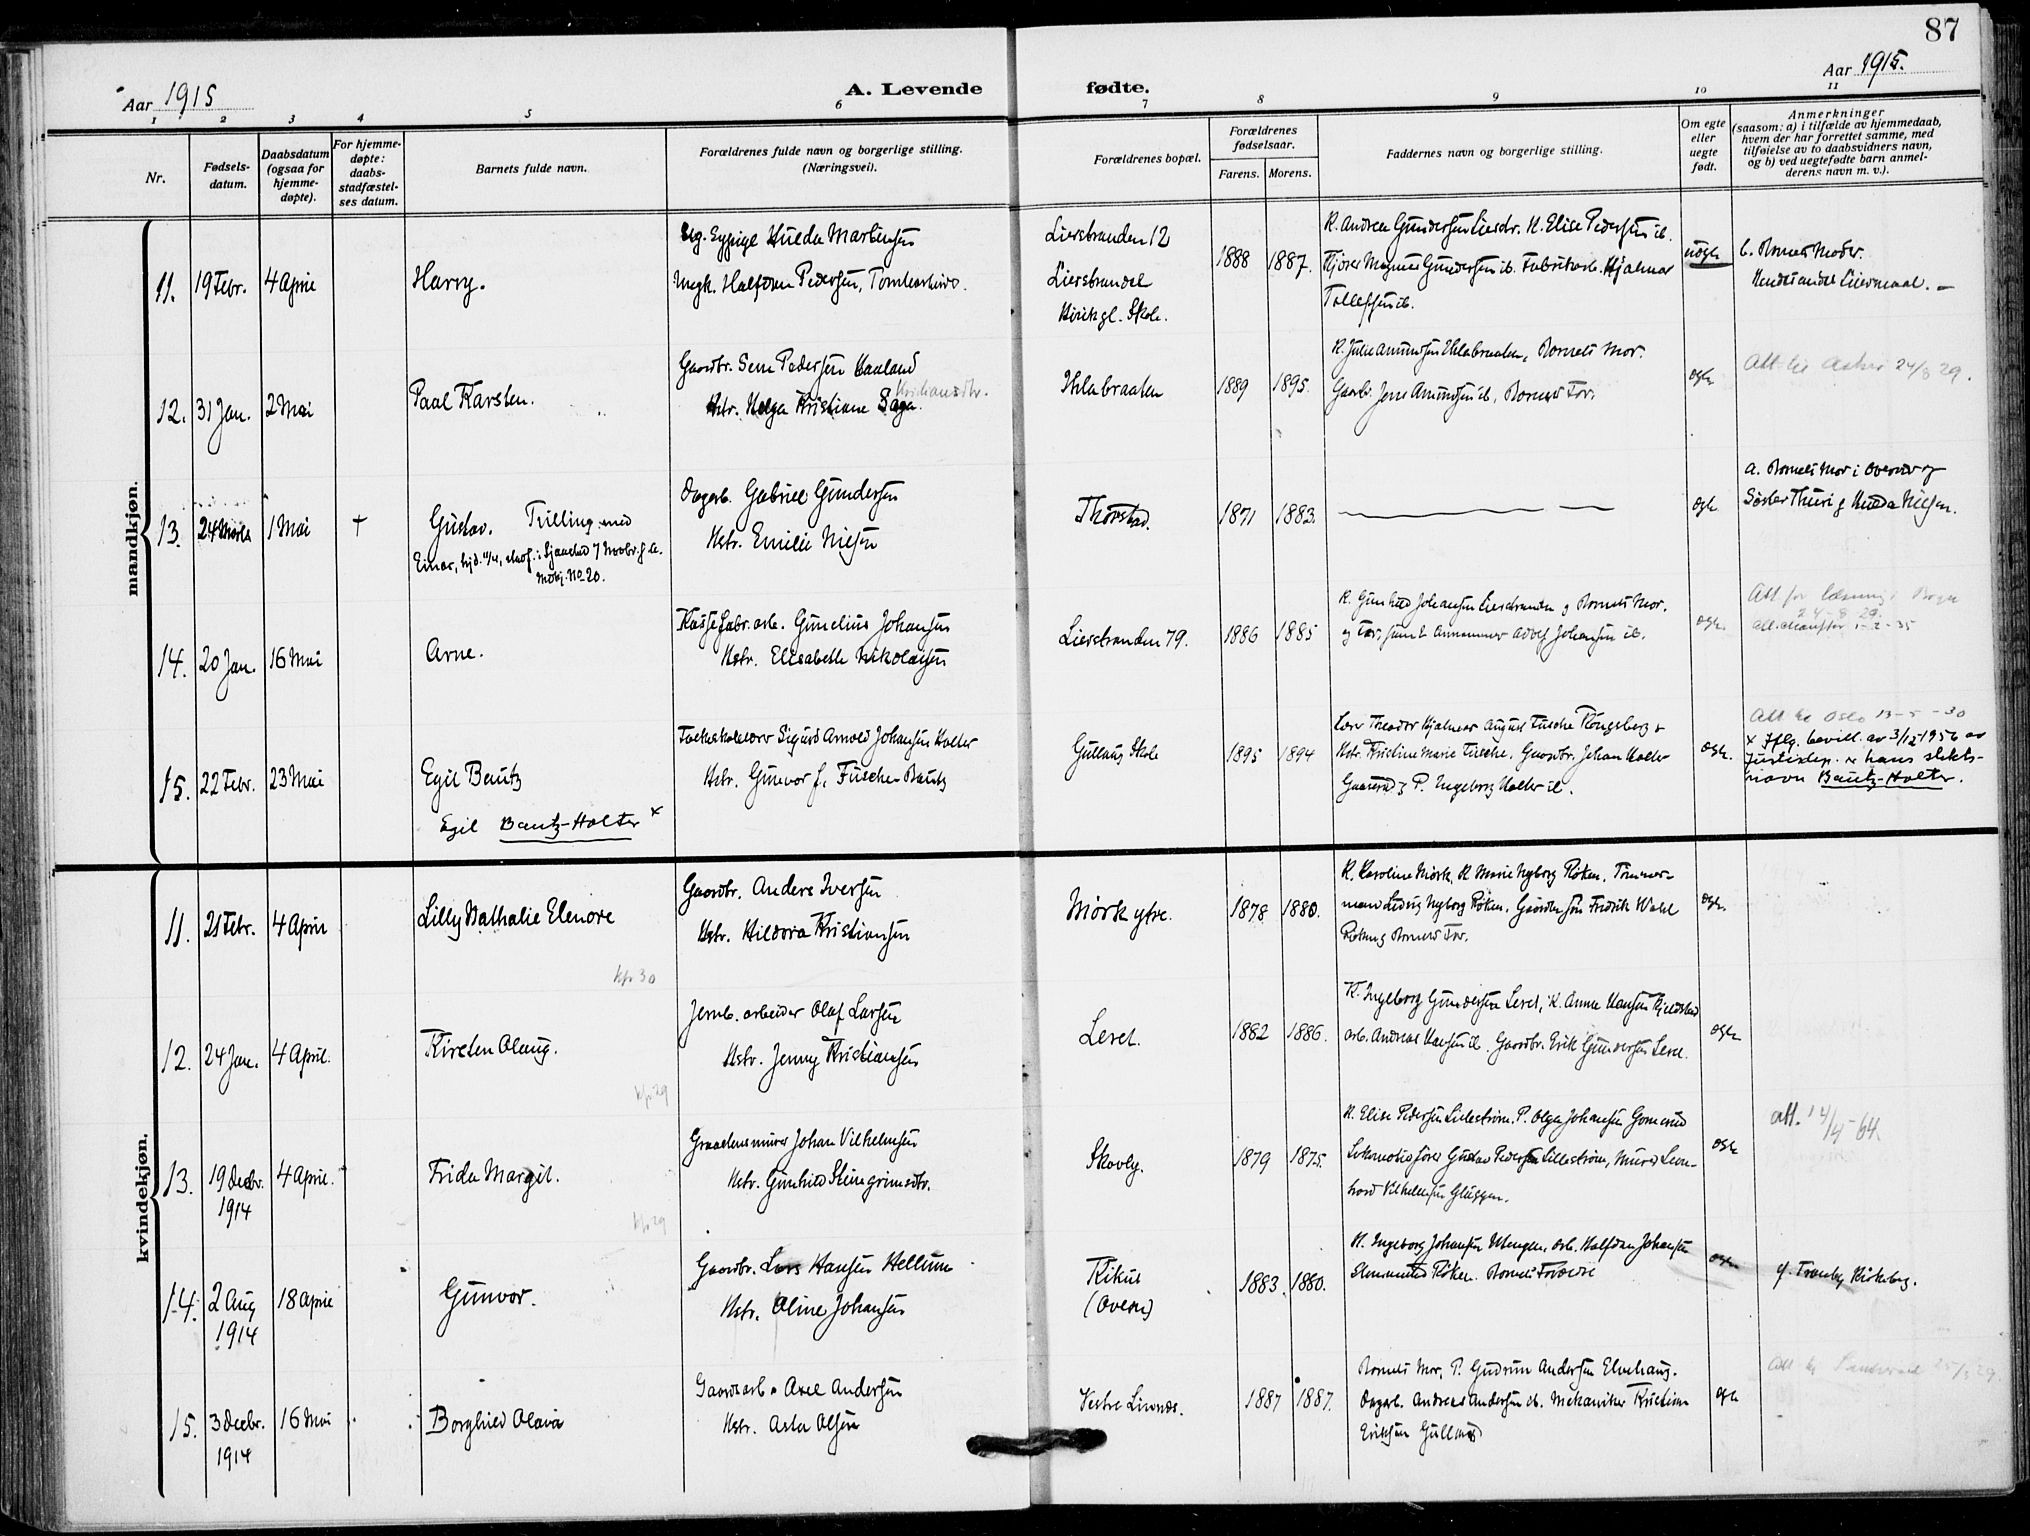 87
Aar 1915
A. Levende fødte.
Aar 1915.
1 2 3 4 5 6 7 8 9 10 11
Nr.
Fødsels-
datum.
Daabsdatum
(ogsaa for
hjemme-
døpte).
For hjemme-
døpte:
daabs-
stadfæstel-
ses datum.
Barnets fulde navn.
Forældrenes fulde navn og borgerlige stilling.
(Næringsvei).
Forældrenes bopæl.
Forældrenes
fødselsaar.
Farens. Morens.
Faddernes navn og borgerlige stilling.
Om egte
eller
uegte
født.
Anmerkninger
(saasom: a) i tilfælde av hjemmedaab,
hvem der har forrettet samme, med
tilføielse av to daabsvidners navn,
og b) ved uegtefødte barn anmel-
derens navn m. v.).
mandkjøn.
11. 19 Febr. 4 April
Harry.
Ug. Pige Hulda Martinsen
Ungk. Halfdan Pedersen,
Lierstranden 12
Lierstranden
gl. Skole.
1888 1887.
K. Andrea Gundersen Lierstr. K. Elise Pedersen ib.
Magnus Gundersen ib. Fabrikarb. Hjalmar
Tollefsen ib.
uegte
b. Barnets Moder.
12. 31 Jan. 2 Mai
Paal Karsten.
Gaardbr. Sem Pedersen Haaland
Hstr. Helga Kristiane Saga
Kristiansdtr.
Hlabraaten
1889 1895.
K. Julie Amundsen Hlabraaten, Barnets Mor.
Gaardbr. Jens Amundsen ib, Barnets Far.
egte
Att. til Asker 24/8 29.
13. 24 Marts 1 Mai +
Gustav. Trilling med
Einar,
No 20.
Dagarb. Gabriel Gundersen
Hstr. Emilie Nilsen
Thorstad.
1871 1883.
egte
a. Barnets Mor i Overvær af
Søster Thuri & Hulda Nilsen.
14. 20 Jan. 16 Mai
Arne.
Kassefabr.arb. Gunelius Johansen
Hstr. Elisabeth Nikolaisen
Lierstranden 79.
1886 1885
K. Gunhild Johansen Lierstranden & Barnets Mor.
og Far, samt Adolf Johansen ib.
egte.
Att. for
24-8-29.
1-2-35
15. 22 Febr. 23 Mai
Egil Bautz
Egil Bautz-Holter x
Sigurd Arnold Johansen Holter
Hstr. Gunvor f. Tusche Bautz
Gullaug Skole
1895 1894
Lærer Theodor Hjalmar August Tusche Kongsberg &
Hstr. Kristine Marie Tusche. Gaardbr. Johan Holter
& P. Ingeborg Holter ib.
egte.
Att. til Oslo 13-5-30
x Iflg. bevill. av 3/12 1956 av
Justisdep. er hans slekts-
navn Bautz-Holter.
kvindekjøn.
11. 21 Febr. 4 April
Lilly Nathalie Elenore
kfr 30
Gaardbr. Anders Iversen
Hstr. Hildora Kristiansen
Mørk ytre.
1878 1880.
K. Karoline Mørk, K. Marie Nyborg Røken. Tømmer-
mand Ludvig Nyborg Røken. Gaardbr.søn Fredrik Wahl
Røken & Barnets Far.
egte.
12. 24 Jan. 4 April.
Kirsten Olaug.
kfr 29
Jernb. arbeider Olaf Larsen
Hstr. Jenny Kristiansen
Leret.
1882 1886.
K. Ingeborg Gundersen Leret, K. Anna Hansen Kjeldstad
arb. Andreas Hansen ib. Gaardbr. Erik Gundersen Leret.
egte
13. 19 Decbr.
1914
4 April.
Frida Margit.
kfr 29
Johan Vilhelmsen
Hstr. Gunhild Steingrimsdtr.
Skovly.
1879 1875.
K. Elise Pedersen Lillestrøm. P. Olga Johansen
Lokomotivfører Gustav Pedersen Lillestrøm, Murer Leon-
hard Vilhelmsen Gluggen.
egte
att. 14/4-64
14. 2 Aug
1914
18 April
Gunvor.
Gaardbr. Lars Hansen Hellum
Hstr. Oline Johansen
Kikut
(Overn)
1883. 1880.
K. Ingeborg Johansen Mengen. Arb. Halfdan Johansen
Røken. Barnets Forældre
egte
f. Tranby Kirkebog.
15. 3 Decbr.
1914
16 Mai
Borghild Olava
Gaardsarb. Axel Andersen
Hstr. Asta Olsen
Vestre Linnes.
1887 1887.
Barnets Mor, P. Gudrun Andersen Elvehaug.
Dagarb. Andreas Andersen ib. Mekaniker Kristian
Eriksen Gullaug
egte
25/3 29.